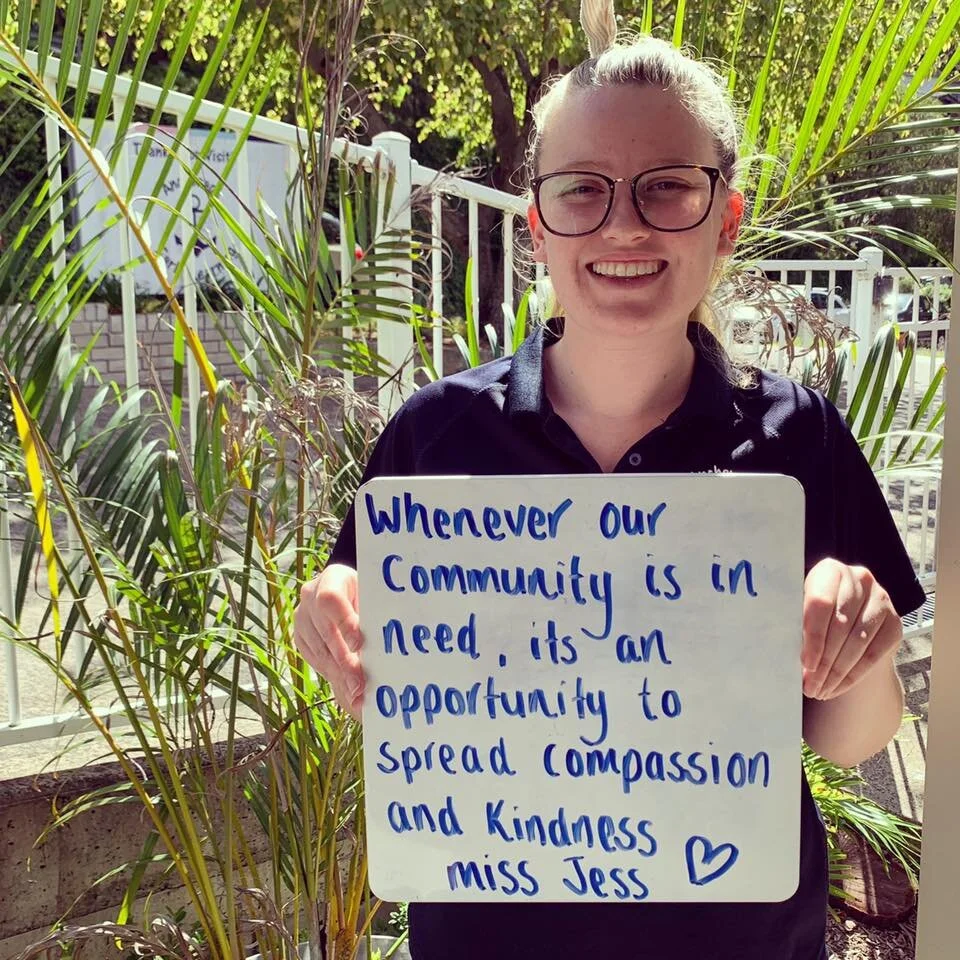 Whenever our
Community is in
need, its an
opportunity to
spread compassion
and Kindness
miss Jess